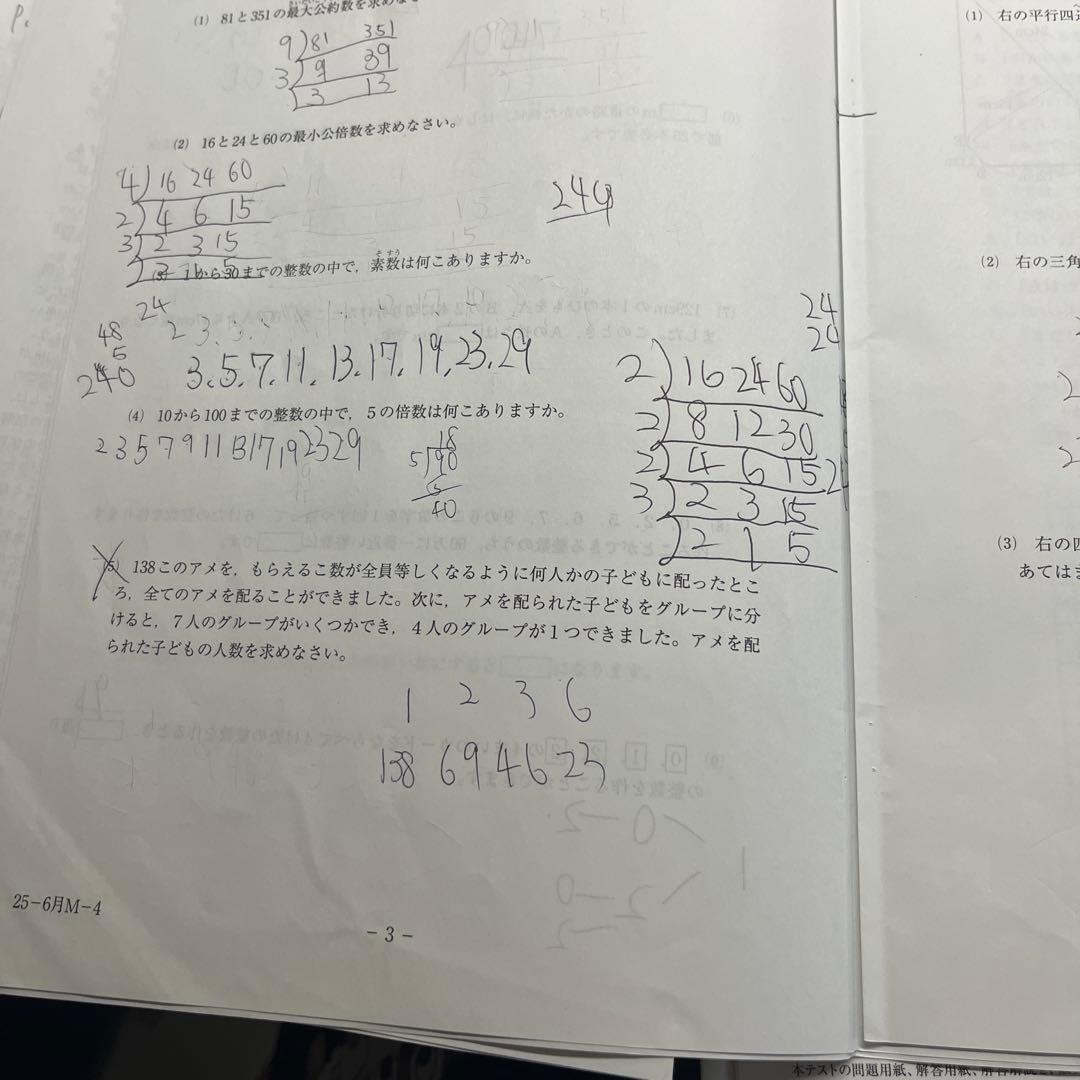 P.
(1) 81と351の最大公約数を求めな
9)81 351
3)9 39
3 13
(2) 16と24と60の最小公倍数を求めなさい。
4)16 24 60
2)4 6 15
3)2 3 15
240
(3) 1から30までの整数の中で,素数は何こありますか。
24
48
5
240
3.5.7.11.13.17.19.23.29
(4) 10から100までの整数の中で,5の倍数は何こありますか。
2 3 5 7 9 11 13 17 19 23 29
18
5)90
5
40
24
2)16 24 60
2)8 12 30
2)4 6 15
3)2 3 15
2 1 5
(5) 138このアメを,もらえるこ数が全員等しくなるように何人かの子どもに配ったとこ
ろ,全てのアメを配ることができました。次に,アメを配られた子どもをグループに分
けると,7人のグループがいくつかでき,4人のグループが1つできました。アメを配
られた子どもの人数を求めなさい。
1 2 3 6
138 69 46 23
25-6月M-4
- 3 -
(1) 右の平行四
(2) 右の三角
(3) 右の四
あてはま
本テストの問題用紙、解答用紙、